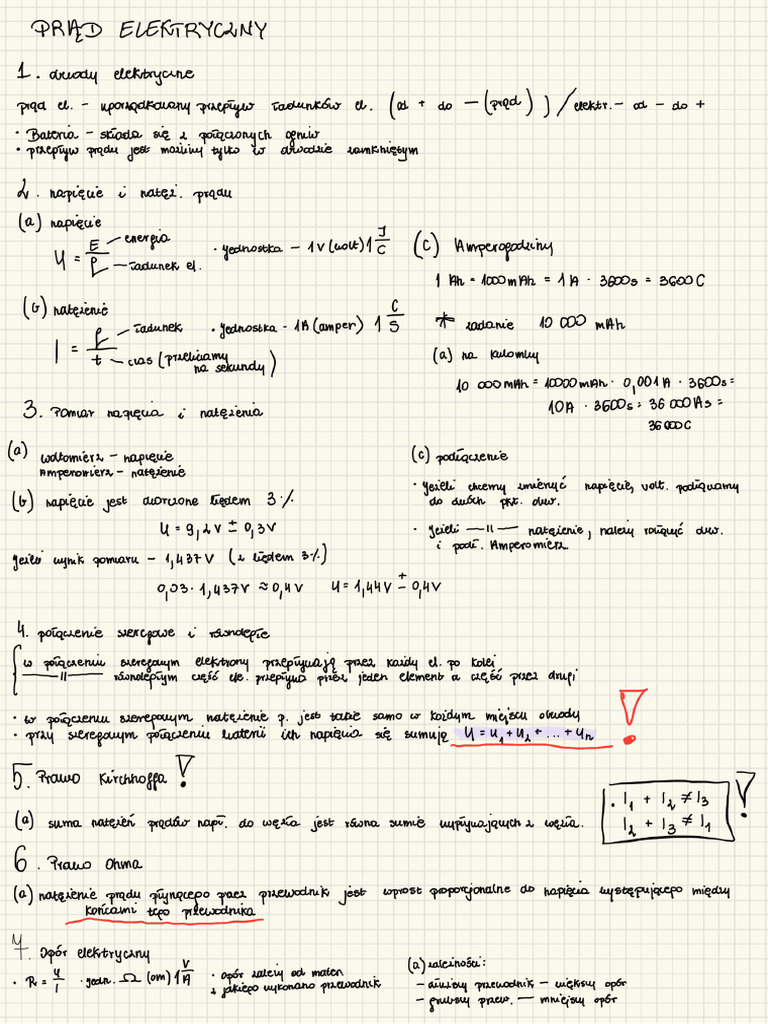 PRĄD ELEKTRYCZNY
1. obwody elektryczne
prąd el. - uporządkowany przepływ ładunków el. (od + do - (prąd)) / elektr. - od - do +
• Bateria - składa się z połączonych ogniw
• przepływ prądu jest możliwy tylko w obwodzie zamkniętym
2. napięcie i natęż. prądu
(a) napięcie
U = E/q
energia
ładunek el.
• jednostka - 1V (wolt) 1 J/C
(b) natężenie
I = q/t
ładunek
czas (przeliczamy na sekundy)
• jednostka - 1A (amper) 1 C/S
(c) Amperogodziny
1 Ah = 1000 mAh = 1A · 3600s = 3600C
* zadanie 10 000 mAh
(a) na kulomby
10 000mAh = 10000mAh · 0,001A · 3600s =
10A · 3600s = 36 000As =
36 000C
3. Pomiar napięcia i natężenia
(a) woltomierz - napięcie
Amperomierz - natężenie
(b) napięcie jest obarczone błędem 3%
U = 9,2V ± 0,3V
jeżeli wynik pomiaru - 1,437V (z błędem 3%)
0,03 · 1,437V ≈ 0,4V U = 1,44V ± 0,4V
(c) podłączenie
• jeżeli chcemy zmierzyć napięcie, volt. podłączamy
do dwóch pkt. obw.
• jeżeli —||— natężenie, należy rozłączyć obw.
i podł. Amperomierz
4. połączenie szeregowe i równoległe
w połączeniu szeregowym elektrony przepływają przez każdy el. po kolei
—||— równoległym część ele. przepływa przez jeden element a część przez drugi
• w połączeniu szeregowym natężenie p. jest takie samo w każdym miejscu obwodu
• przy szeregowym połączeniu baterii ich napięcia się sumują U = U₁ + U₂ + ... + Uₙ !
5. Prawo Kirchhoffa !
(a) suma natężeń prądów napł. do węzła jest równa sumie wypływających z węzła.
• I₁ + I₂ ≠ I₃
I₂ + I₃ ≠ I₁
!
6. Prawo Ohma
(a) natężenie prądu płynącego przez przewodnik jest wprost proporcjonalne do napięcia występującego między
końcami tego przewodnika
7. Opór elektryczny
• R = U/I • jedn. Ω (om) 1 V/A
• Opór zależy od mater.
z jakiego wykonano przewodnik
(a) zależności:
- dłuższy przewodnik - większy opór
- grubszy przew. - mniejszy opór